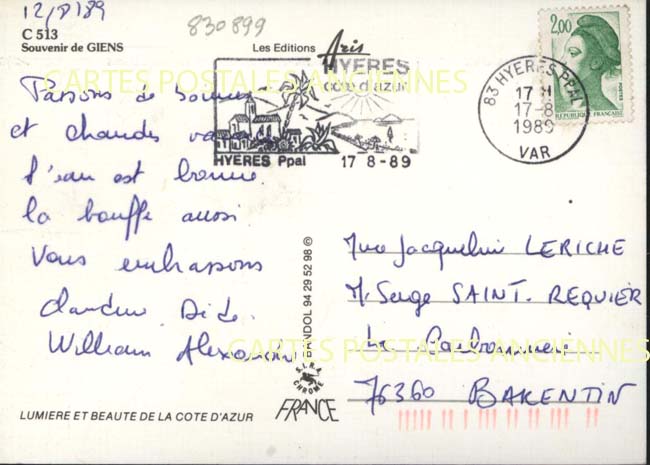 12/8/89
830899
C 513
Souvenir de GIENS
Les Editions Aris
HYERES
côte d'azur
HYERES Ppal 17 8-89
83 HYERES PPAL
17 H
17-8
1989
VAR
2,00
POSTES
REPUBLIQUE FRANÇAISE
CARTES POSTALES ANCIENNES
Passons de bonnes
et chaudes
l'eau est bonne
la bouffe aussi
Vous embrassons
Claudine Dide
William Alexandre
Mme Jacqueline LERICHE
M. Serge SAINT-REQUIER
La
76360 BARENTIN
CARTES POSTALES ANCIENNES
BANDOL 94 29 52 98 ©
S.L.R.A
CHROME
FRANCE
LUMIERE ET BEAUTE DE LA COTE D'AZUR